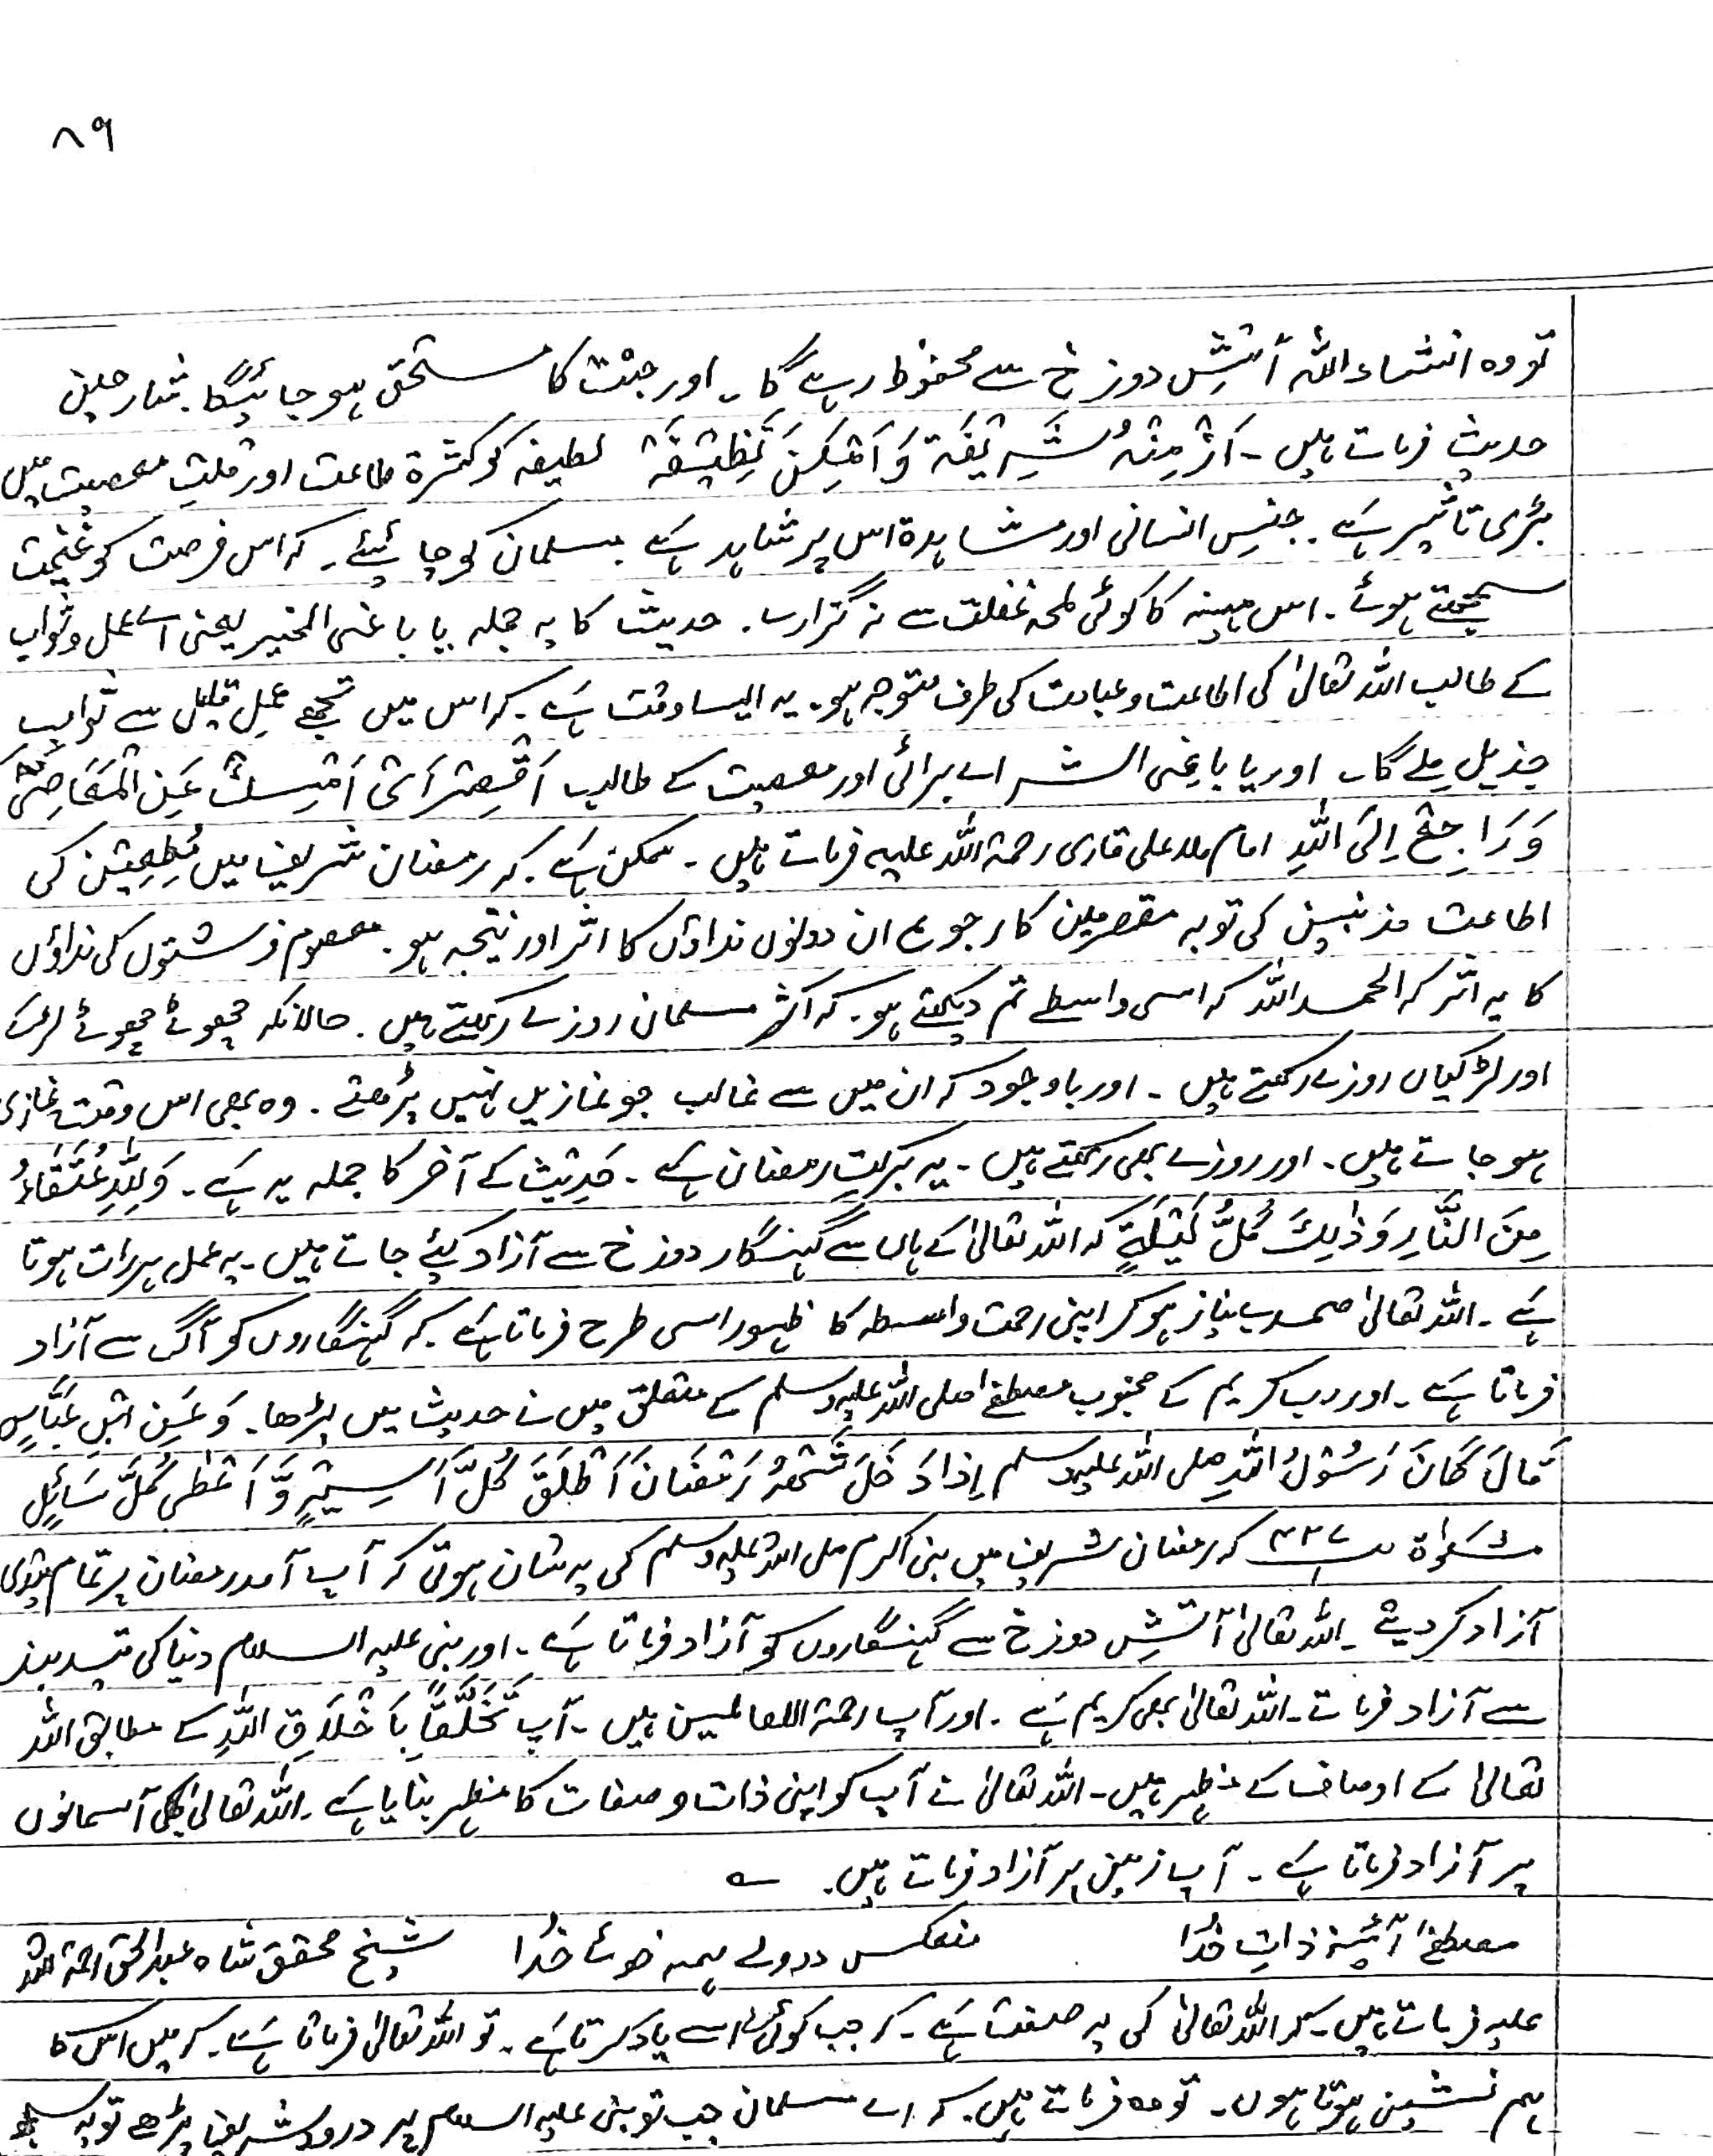 ۸۹
تو وہ انشاء اللہ آتشِ دوزخ سے محفوظ رہے گا۔ اور جنت کا مستحق ہو جائیگا۔ شارحین
حدیث فرماتے ہیں۔ اَزْمِنَۃُ شَرِیْفَۃ وَ اَمْکِنَ لَطِیْفَۃ لطیفہ کو کثرۃ طاعت اور قلتِ معصیت میں
بڑی تاثیر ہَے۔ جنسِ انسانی اور مشاہدۃ اس پر شاہد ہَے مسلمان کو چاہئیے۔ کہ اس فرصت کو غنیمت
سمجھتے ہوئے۔ اس مہینہ کا کوئی لمحہ غفلت سے نہ گزارے۔ حدیث کا یہ جملہ یا باغی الخیر یعنی اے عمل و ثواب
کے طالب اللہ تعالیٰ کی اطاعت و عبادت کی طرف متوجہ ہو۔ یہ ایسا وقت ہَے۔ کہ اس میں تجھے عملِ قلیل سے ثوابِ
جذیل ملے گا۔ اور یا باغی الشر اے برائی اور معصیت کے طالب اَقْصِرْ اَیْ اَمْسِکْ عَنِ الْمَعَاصِیْ
وَرَاجِعْ اِلَی اللّٰہِ امام ملا علی قاری رحمۃ اللہ علیہ فرماتے ہیں۔ ممکن ہَے۔ کہ رمضان شریف میں مُطِعِیْن کی
اطاعت مذنبین کی توبہ مقصرین کا رجوع ان دونوں نداؤں کا اثر اور نتیجہ ہو۔ معصوم فرشتوں کی نداؤں
کا یہ اثر کہ الحمد اللہ کہ اسی واسطے تم دیکھتے ہو۔ کہ اکثر مسلمان روزے رکھتے ہیں۔ حالانکہ چھوٹے چھوٹے لڑکے
اور لڑکیاں روزے رکھتے ہیں۔ اور باوجود کہ ان میں سے غالب جو نمازیں نہیں پڑھتے۔ وہ بھی اس وقت نمازی
ہو جاتے ہیں۔ اور روزے بھی رکھتے ہیں۔ یہ برکتِ رمضان ہَے۔ حَدِیْث کے آخر کا جملہ یہ ہَے۔ وَلِلّٰہِ عُتَقَاءُ
مِنَ النَّارِ وَذٰلِکَ کُلُّ لَیْلَۃٍ کہ اللہ تعالیٰ کے ہاں سے گنہگار دوزخ سے آزاد کیئے جاتے ہیں۔ یہ عمل ہر رات ہوتا
ہَے۔ اللہ تعالیٰ صمد بے نیاز ہو کر اپنی رحمت واسعہ کا ظہور اسی طرح فرماتا ہَے۔ کہ گنہگاروں کو آگ سے آزاد
فرماتا ہَے۔ اور رب کریم کے محبوب مصطفےٰ صلی اللہ علیہ وسلم کے متعلق میں نے حدیث میں پڑھا۔ وَعَنِ ابْنِ عَبَّاسٍ
قَالَ کَانَ رَسُوْلُ اللّٰہِ صلی اللہ علیہ وسلم اِذَا دَخَلَ شَھْرُ رَمْضَانَ اَطْلَقَ کُلَّ اَسِیْرٍ وَّ اَعْطٰی کُلَّ سَائِلٍ
مشکوٰۃ کہ رمضان شریف میں نبی اکرم صلی اللہ علیہ وسلم کی یہ شان ہوتی کہ آپ آمد رمضان پر تمام قیدی
آزاد کر دیتے۔ اللہ تعالیٰ آتشِ دوزخ سے گنہگاروں کو آزاد فرماتا ہَے۔ اور نبی علیہ السلام دنیا کی قید بند
سے آزاد فرماتے۔ اللہ تعالیٰ بھی کریم ہَے۔ اور آپ رحمۃ اللعالمین ہیں۔ آپ تَخَلُّقاً بِاَخْلَاقِ اللّٰہِ کے مطابق اللہ
تعالیٰ کے اوصاف کے مظہر ہیں۔ اللہ تعالیٰ نے آپ کو اپنی ذات و صفات کا مظہر بنایا ہَے۔ اللہ تعالیٰ آسمانوں
پر آزاد فرماتا ہَے۔ آپ زمین پر آزاد فرماتے ہیں۔ ؎
مصطفےٰ آئینہ ذاتِ خُدا منعکس در وے ہمہ خوئے خُدا شیخ محقق شاہ عبد الحق رحمۃ اللہ
علیہ فرماتے ہیں۔ کہ اللہ تعالیٰ کی یہ صفت ہَے۔ کہ جب کوئی اسے یاد کرتا ہَے۔ تو اللہ تعالیٰ فرماتا ہَے۔ کہ میں اس کا
ہم نشین ہوتا ہوں۔ تو وہ فرماتے ہیں۔ کہ اے مسلمان جب تو نبی علیہ السلام پر درود شریف پڑھے تو یہ